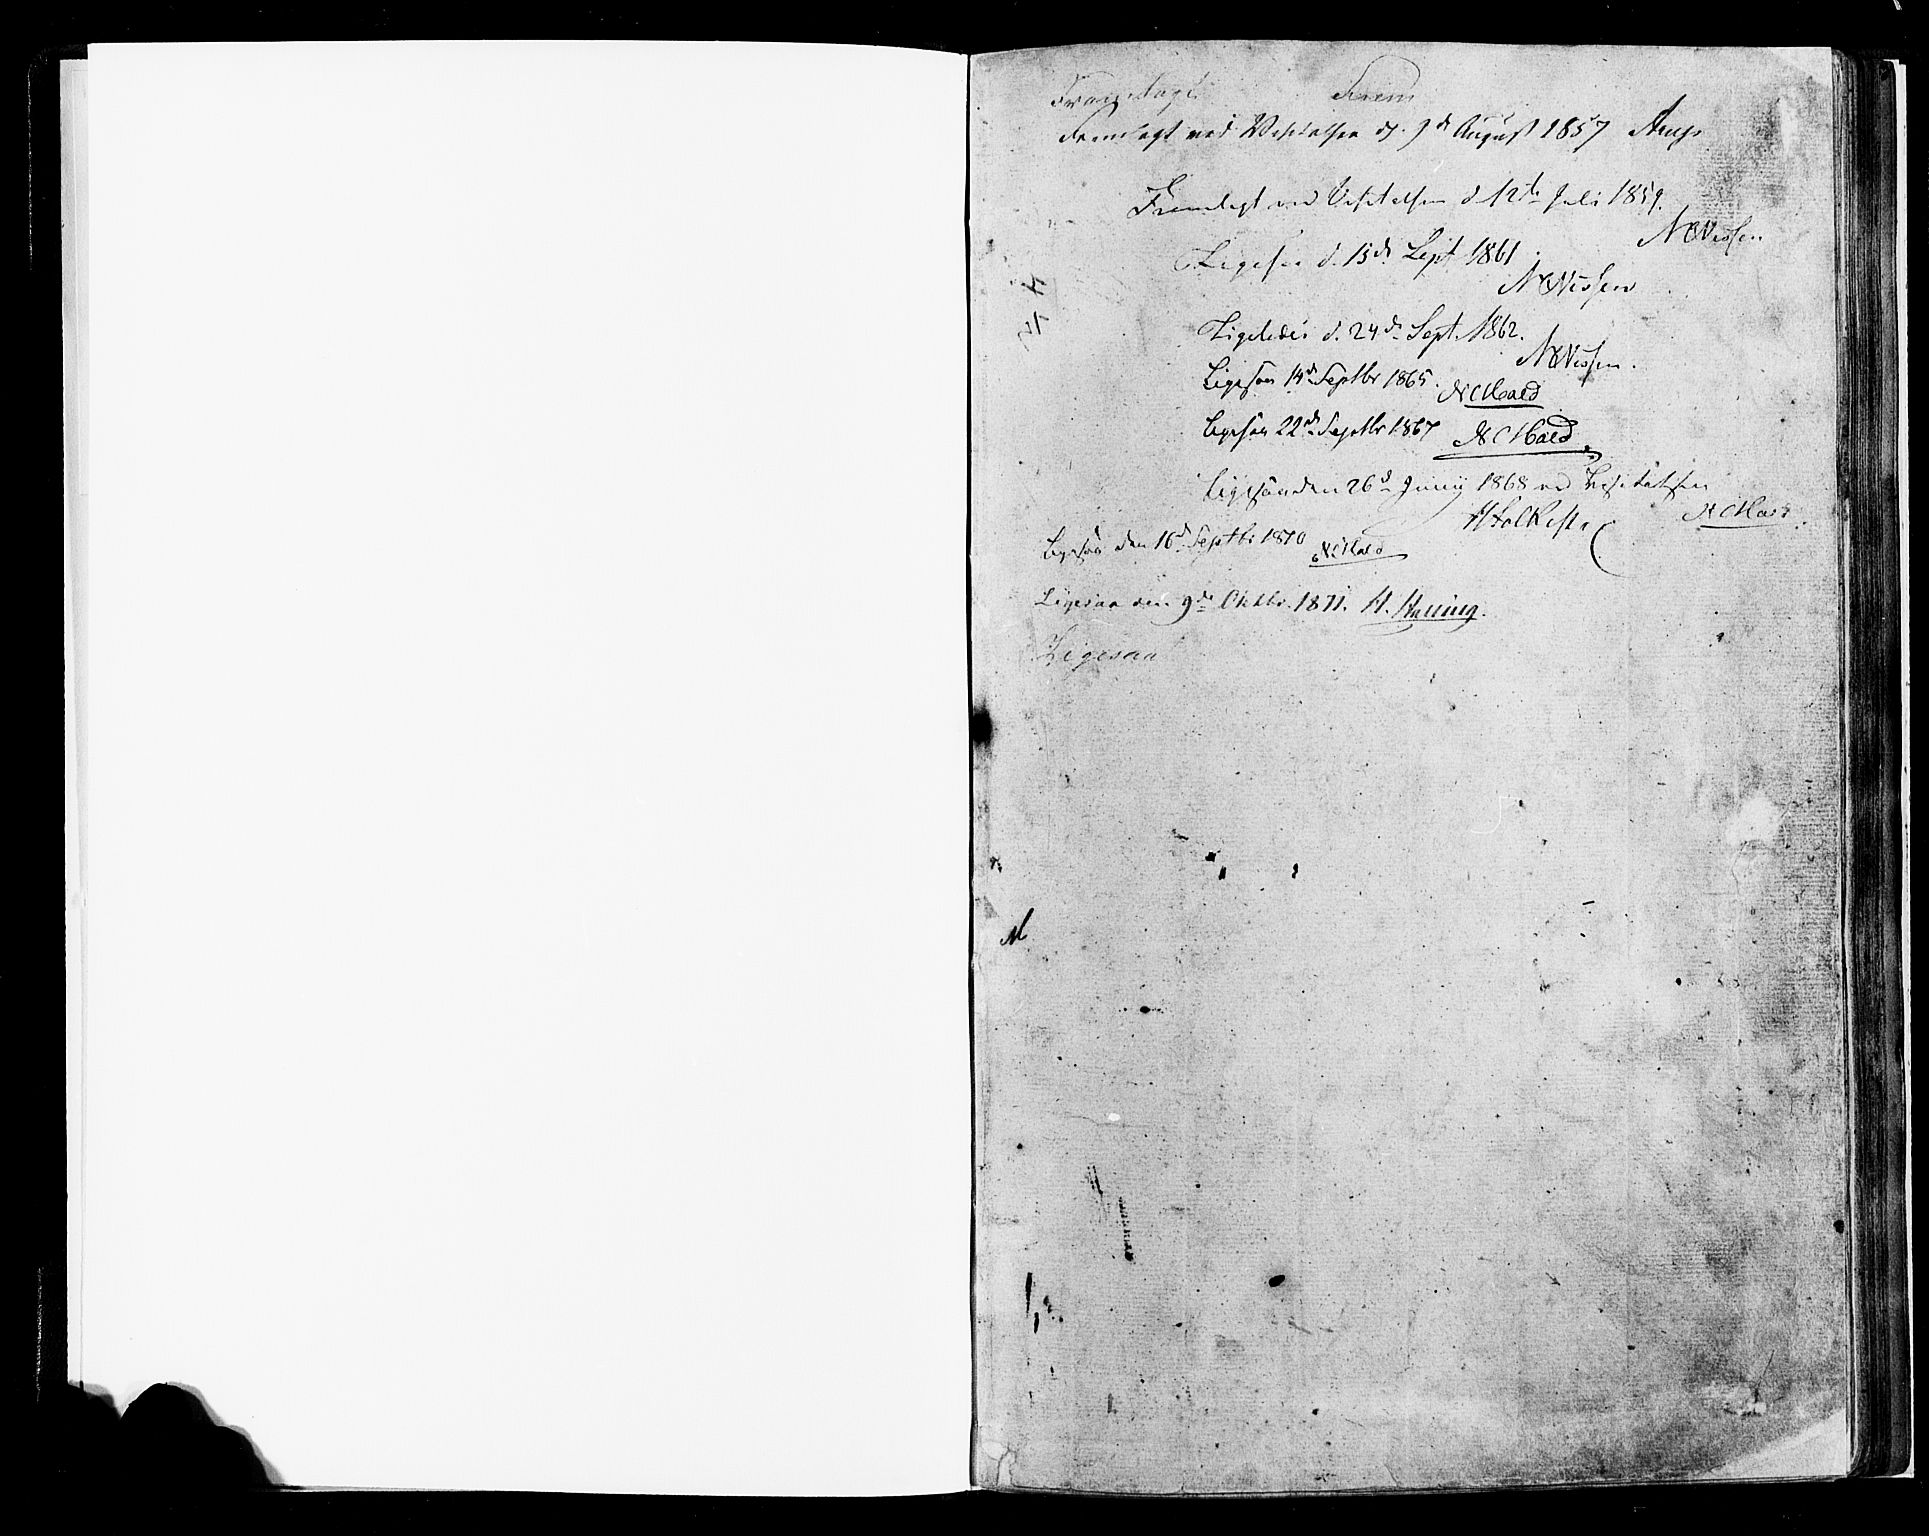 Fremlagt Frem
Fremlagt ved Visitatsen d. 9d August 1857 Arup
Fremlagt ved Visitatsen d 12te Juli 1859.
NCNissen
Ligesaa d. 15de Sept 1861.
NCNissen
Ligeledes d. 24de Sept. 1862.
NCNissen.
Ligesaa 14de Septbr 1865. NCHald
Ligesaa 22de Septbr 1867 NCHald
Ligesaa den 26d Junij 1868 ved Visitatsen
NCHald
Ligesaa den 16d Septbr 1870 NCHald
Ligesaa den 9de Oktbr. 1871. H. Haning.
Ligesaa